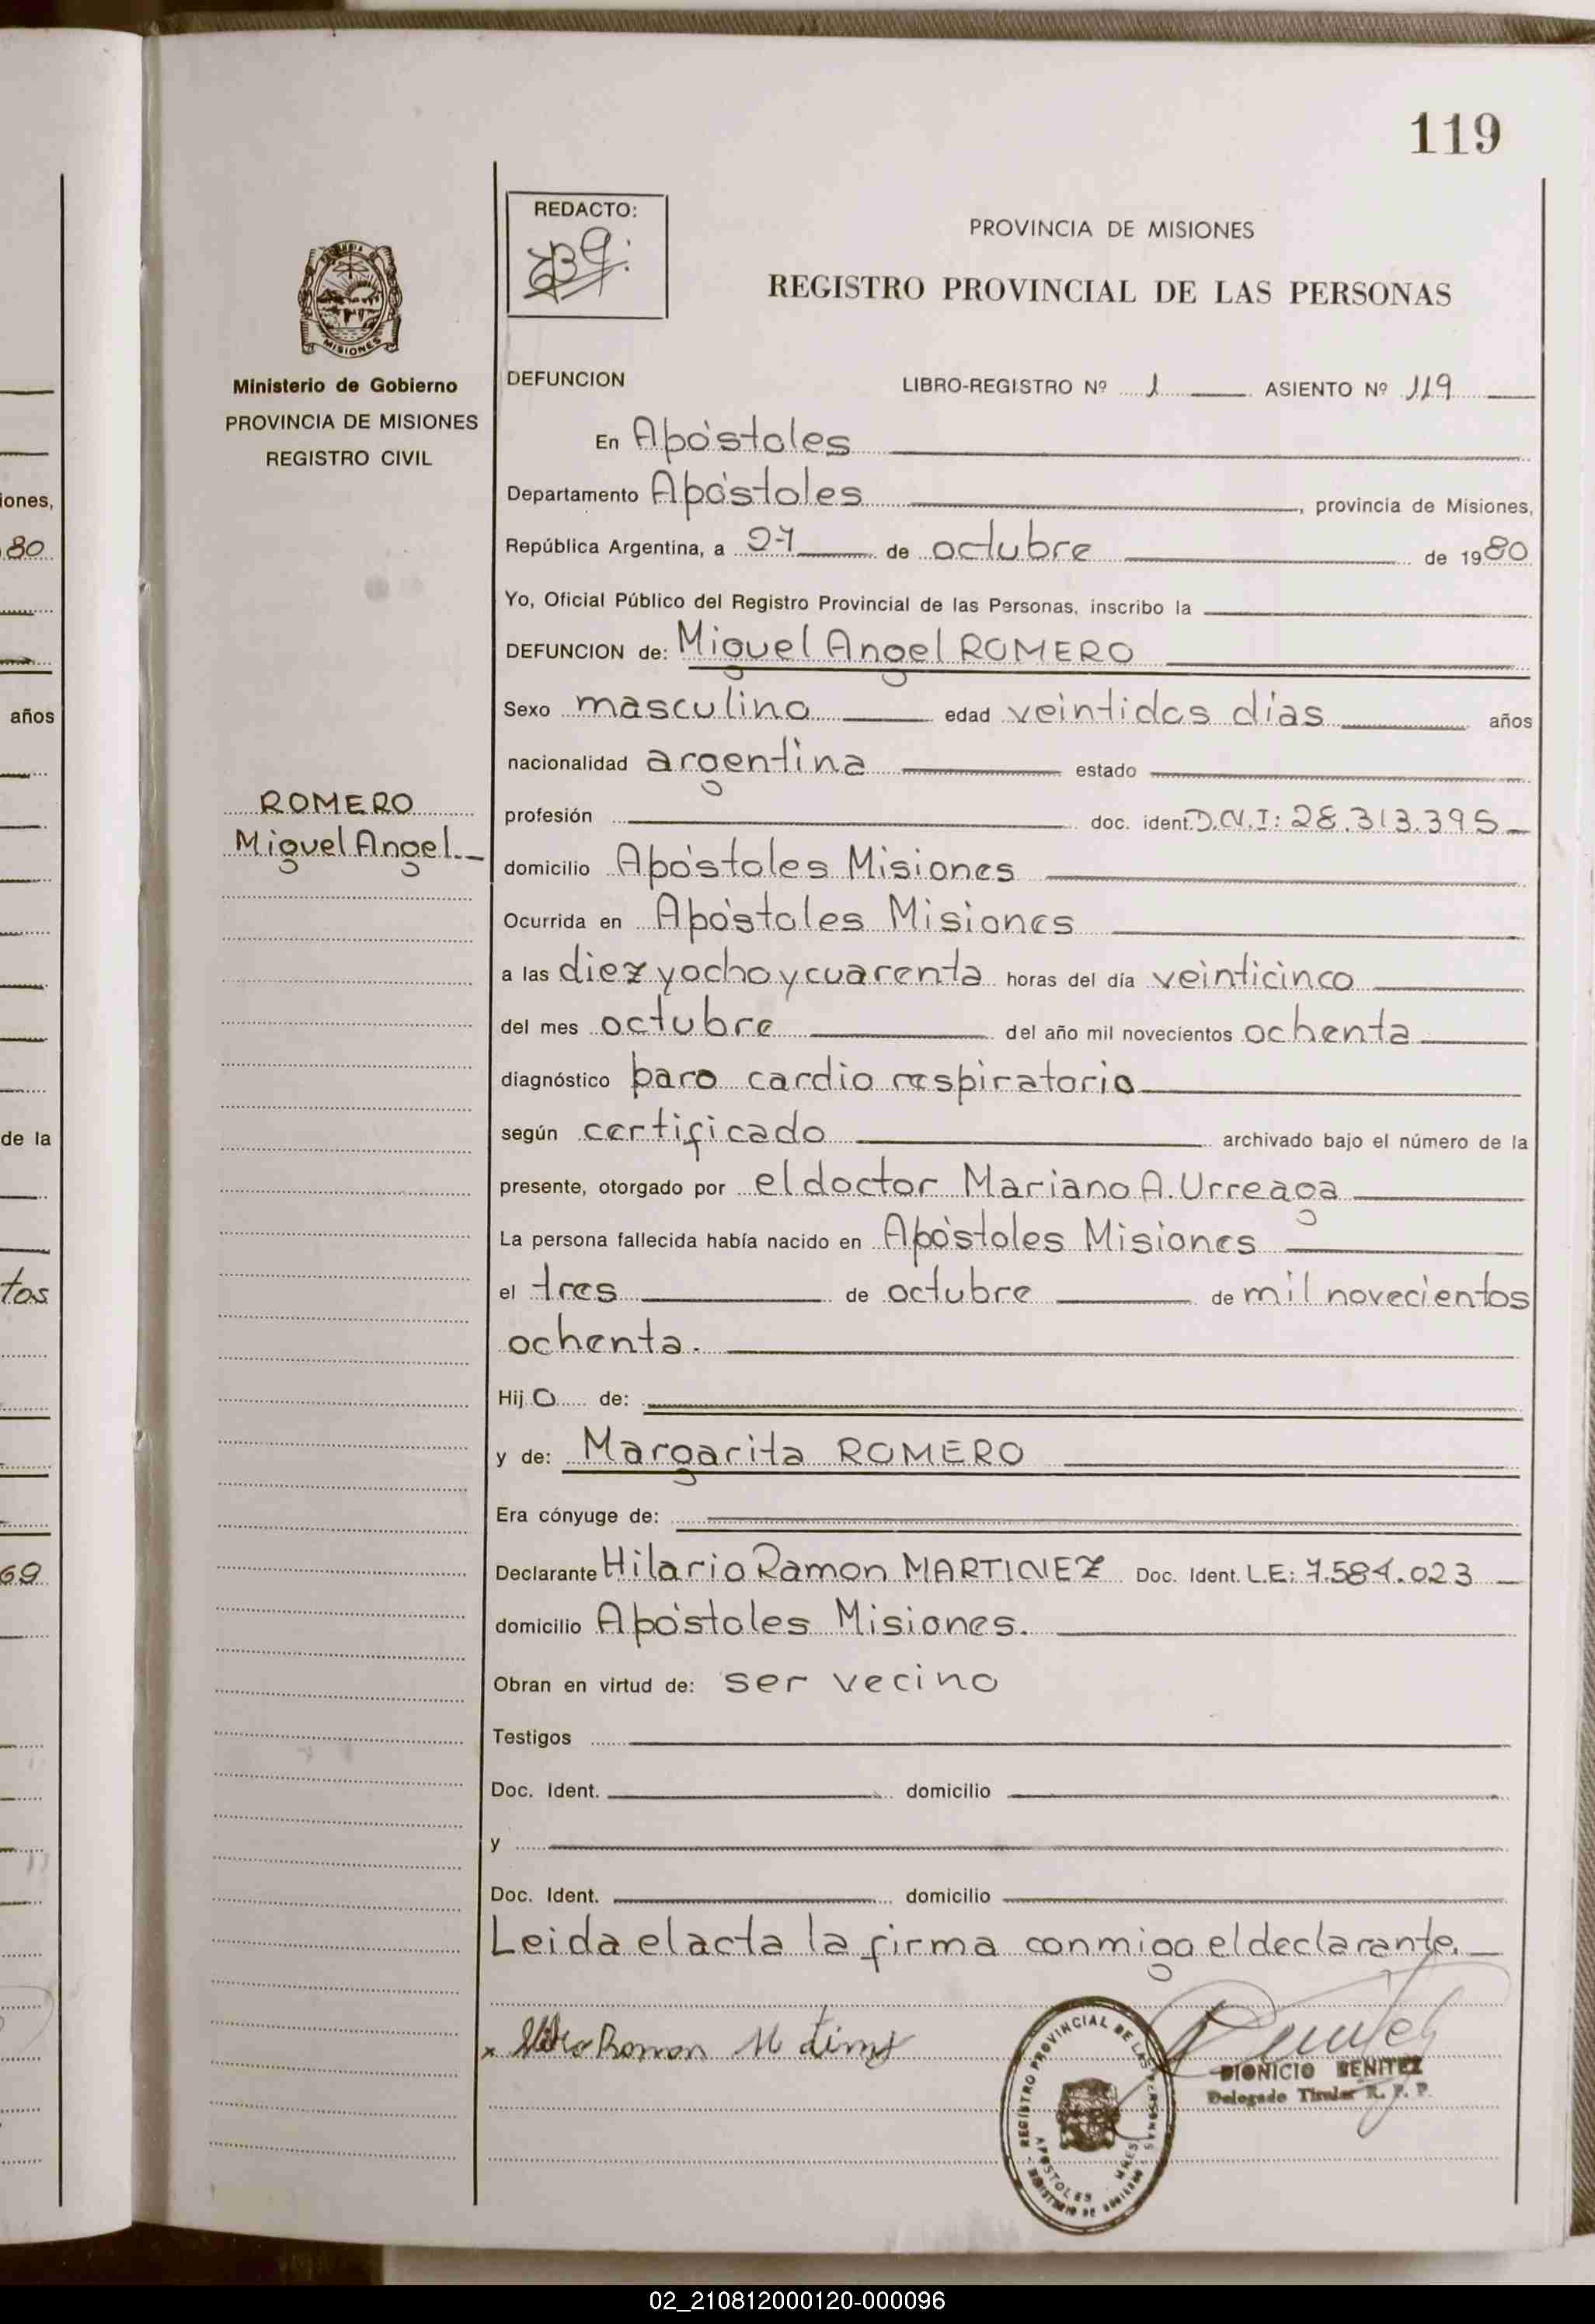 119
REDACTO:
PROVINCIA DE MISIONES
REGISTRO PROVINCIAL DE LAS PERSONAS
MISIONES
Ministerio de Gobierno
PROVINCIA DE MISIONES
REGISTRO CIVIL
DEFUNCION LIBRO-REGISTRO Nº 1 ASIENTO Nº 119
En Apóstoles
Departamento Apóstoles, provincia de Misiones,
República Argentina, a 27 de octubre de 1980
Yo, Oficial Público del Registro Provincial de las Personas, inscribo la
DEFUNCION de: Miguel Angel ROMERO
Sexo masculino edad veintidos días años
nacionalidad argentina estado
profesión doc. ident. D.N.I: 28.313.395
ROMERO
Miguel Angel.
domicilio Apóstoles Misiones
Ocurrida en Apóstoles Misiones
a las diez y ocho y cuarenta horas del día veinticinco
del mes octubre del año mil novecientos ochenta
diagnóstico paro cardio respiratorio
según certificado archivado bajo el número de la
presente, otorgado por el doctor Mariano A. Urreaga
La persona fallecida había nacido en Apóstoles Misiones
el tres de octubre de mil novecientos
ochenta.
Hijo de:
y de: Margarita ROMERO
Era cónyuge de:
Declarante Hilario Ramon MARTINEZ Doc. Ident. L.E: 7.584.023
domicilio Apóstoles Misiones.
Obran en virtud de: ser vecino
Testigos
Doc. Ident. domicilio
y
Doc. Ident. domicilio
Leida el acta la firma conmigo el declarante.
REGISTRO PROVINCIAL DE LAS PERSONAS
APOSTOLES MNES
DIONICIO BENITEZ
Delegado Titular R. P. P.
iones,
80
años
de la
tos
69
02_210812000120-000096